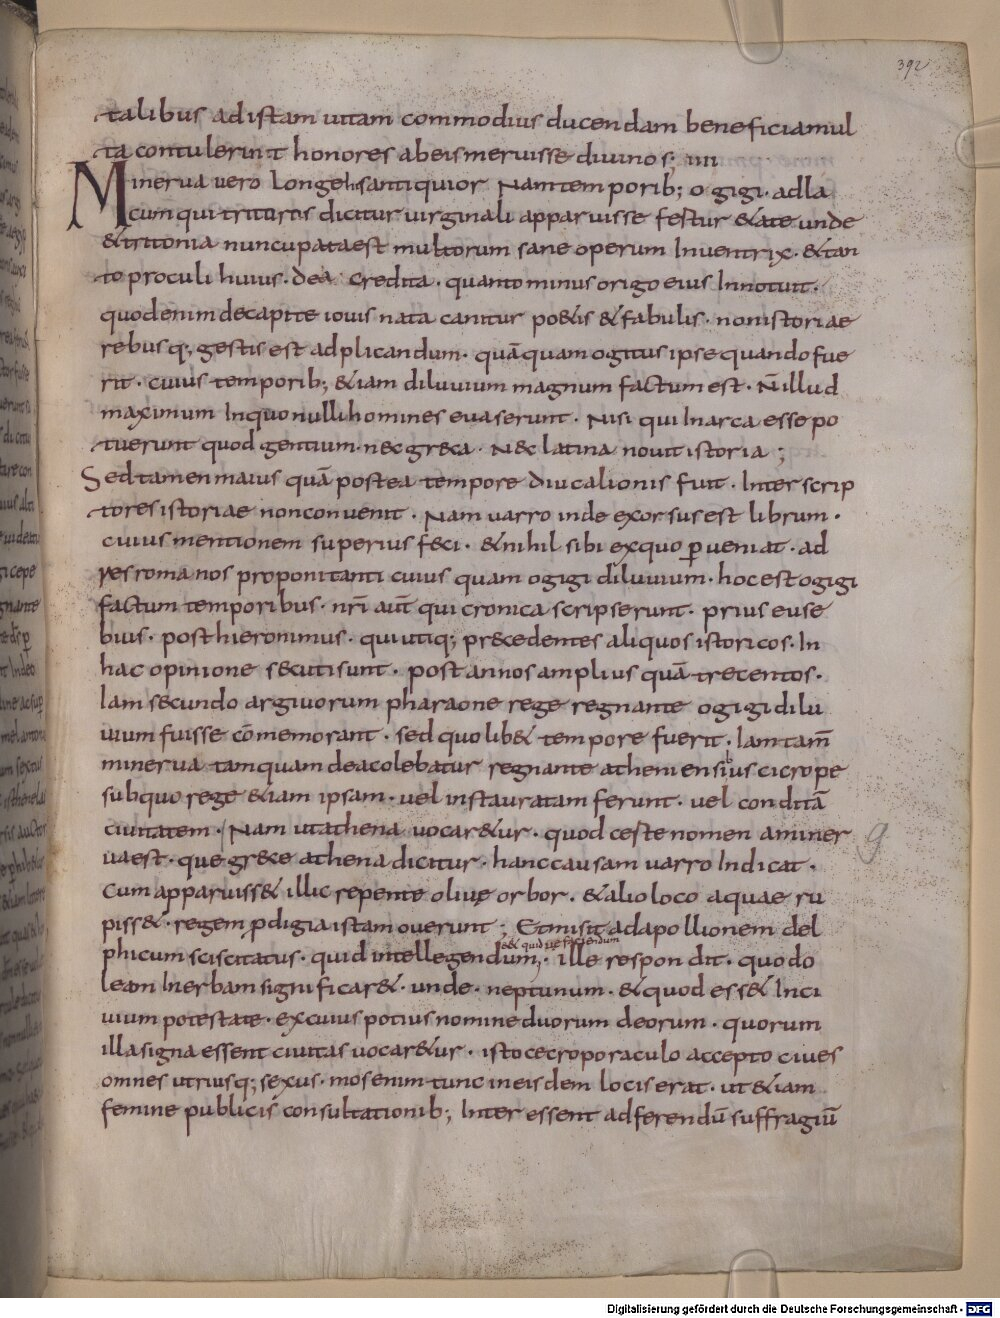 392
talibus ad istam uitam commodius ducendam beneficia mul
ta contulerint honores ab eis meruisse diuinos; 
Minerua uero longe his antiquior Nam temporib; ogigi · ad la
cum qui tritonis dicitur uirginali apparuisse fertur &ate unde
& tritonia nuncupata est multorum sane operum Inuentrix · & tan
to proculi huius · dea credita · quanto minus origo eius Innotuit ·
quod enim de capite iouis nata canitur po&is & fabulis · non istoriae
rebusq; gestis est adplicandum · quā quam ogitus ipse quando fue
rit · cuius temporib; &iam diluuium magnum factum est · N̄ illud
maximum In quo nulli homines euaserunt · Nisi qui In arca esse po
tuerunt quod gentium · nec greca · Nec latina nouit istoria ;
Sed tamen maius quā postea tempore diucalionis fuit · Inter scrip
tores istoriae non conuenit · Nam uarro inde exorsus est librum ·
cuius mentionem superius feci · & nihil sibi ex quo pueniat · ad
res romanos proponit anti cuius quam ogigi diluuium · hoc est ogigi
factum temporibus · nr̄i aut̄ qui cronica scripserunt · prius euse
bius · post hieronimus · qui utiq; precedentes aliquos istoricos · In
hac opinione secuti sunt · post annos amplius quā trecentos ·
Iam secundo argiuorum pharaone rege regnante ogigi dilu
uium fuisse cōmemorant · sed quo lib& tempore fuerit · Iam tam̄
minerua tamquam dea colebatur regnante atheniensibus cicrope
sub quo rege &iam ipsam · uel instauratam ferunt · uel conditā
ciuitatem · Nam ut athena uocar&ur · quod ceste nomen a miner
ua est · que grece athena dicitur · hanc causam uarro Indicat ·
cum apparuiss& illic repente oliue orbor · & alio loco aquae ru
piss& · regem pdigia ista mouerunt ; Et misit ad apollionem del
& quid ue faciendum
phicum sciscitatus · quid intellegendum; · ille respondit · quod o
leam Inerbam significar& · unde · neptunum · & quod ess& In ci
uium potestate · ex cuius potius nomine duorum deorum · quorum
illa signa essent ciuitas uocar&ur · isto cecrop oraculo accepto ciues
omnes utriusq; sexus · mos enim tunc in eisdem locis erat · ut &iam
femine publicis consultationib; Inter essent ad ferendū suffragiū
9
Digitalisierung gefördert durch die Deutsche Forschungsgemeinschaft - DFG